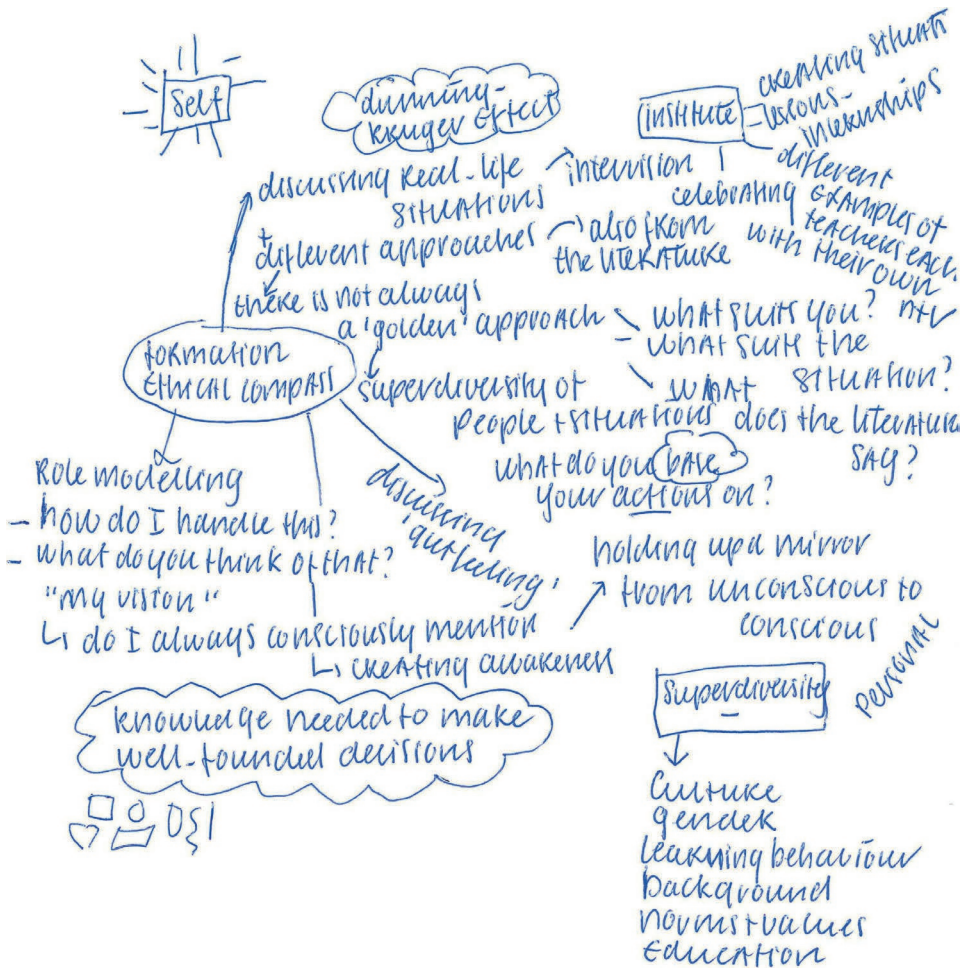 Self
dunning-
kruger effect
institute
- creating situati
- lessons -
internships
different
examples of
teachers each
with their own
celebrating
discussing real-life
situations
intervision
+
different approaches
also from
the literature
there is not always
a 'golden' approach
- what suits you?
- what suits the
situation?
what
does the literature
say?
formation
ethical compass
superdiversity of
people + situations
what do you base
your actions on?
Role modelling
- how do I handle this?
- what do you think of that?
"my vision"
↳ do I always consciously mention
↳ creating awareness
discussing
'gutfeeling'
holding up a mirror
from unconscious to
conscious
knowledge needed to make
well-founded decisions
superdiversity
personal
culture
gender
learning behaviour
background
norms + values
education